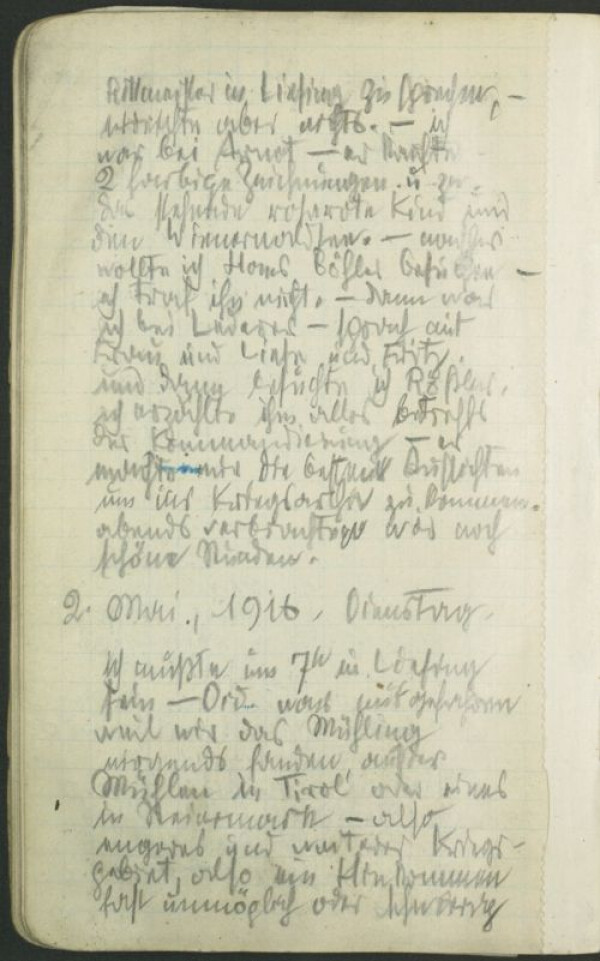 Rittmeister in Liesing zu sprechen, –
erreichte aber nichts. – ich
war bei Arnot – er kaufte
2 farbige Zeichnungen. u. zw.
das stehende rosarote Kind und
den Wienerwaldsee. – nachher
wollte ich Hans Böhler besuchen –
ich traf ihn nicht. – dann war
ich bei Lederer – sprach mit
Frau und Liese und Fritz.
und dann besuchte ich Rößler.
ich erzählte ihm alles betreffs
der Kommandierung – er
machte mir die besten Aussichten
um ins Kriegsarchiv zu kommen.
abends verbrachten wir noch
schöne Stunden.
2. Mai., 1916, Dienstag.
ich mußte um 7h in Liesing
sein – war mitgefahren
weil wir das Mühling
nirgends fanden außer
Mühlen in Tirol oder eines
in Steiermark – also
engeres und weiteres Kriegs-
gebiet, also ein Hinkommen
fast unmöglich oder schwierig